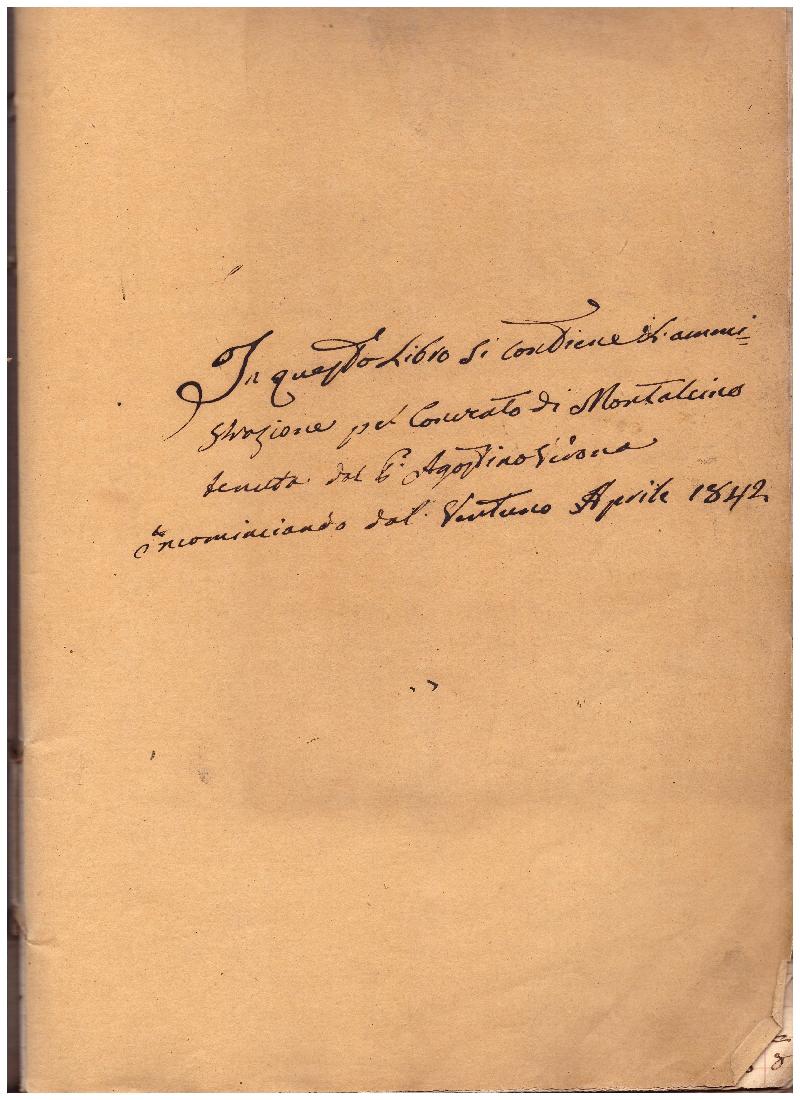 In questo Libro si contiene l'ammi=
strazione pel Convento di Montalcino
tenuta dal P. Agostino
incominciando dal Ventuno Aprile 1842